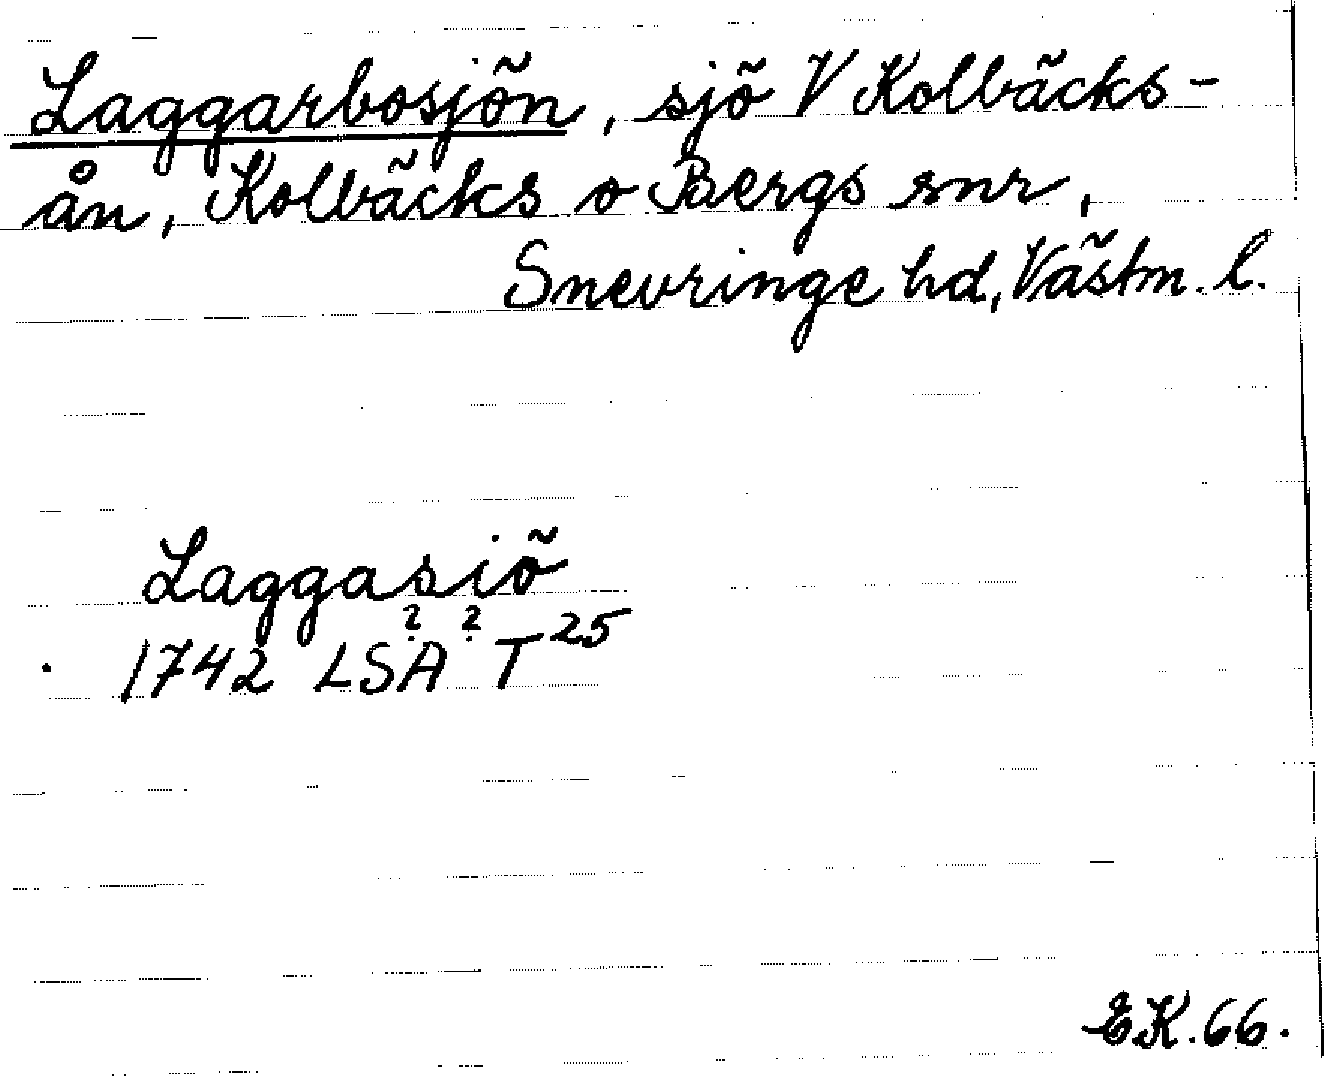 Laggarbosjön, sjö V Kolbäcks-
ån, Kolbäcks o Bergs snr,
Snevringe hd, Västm. l.
Laggasiö
1742 LSA T 25
? ?
EK. 66.